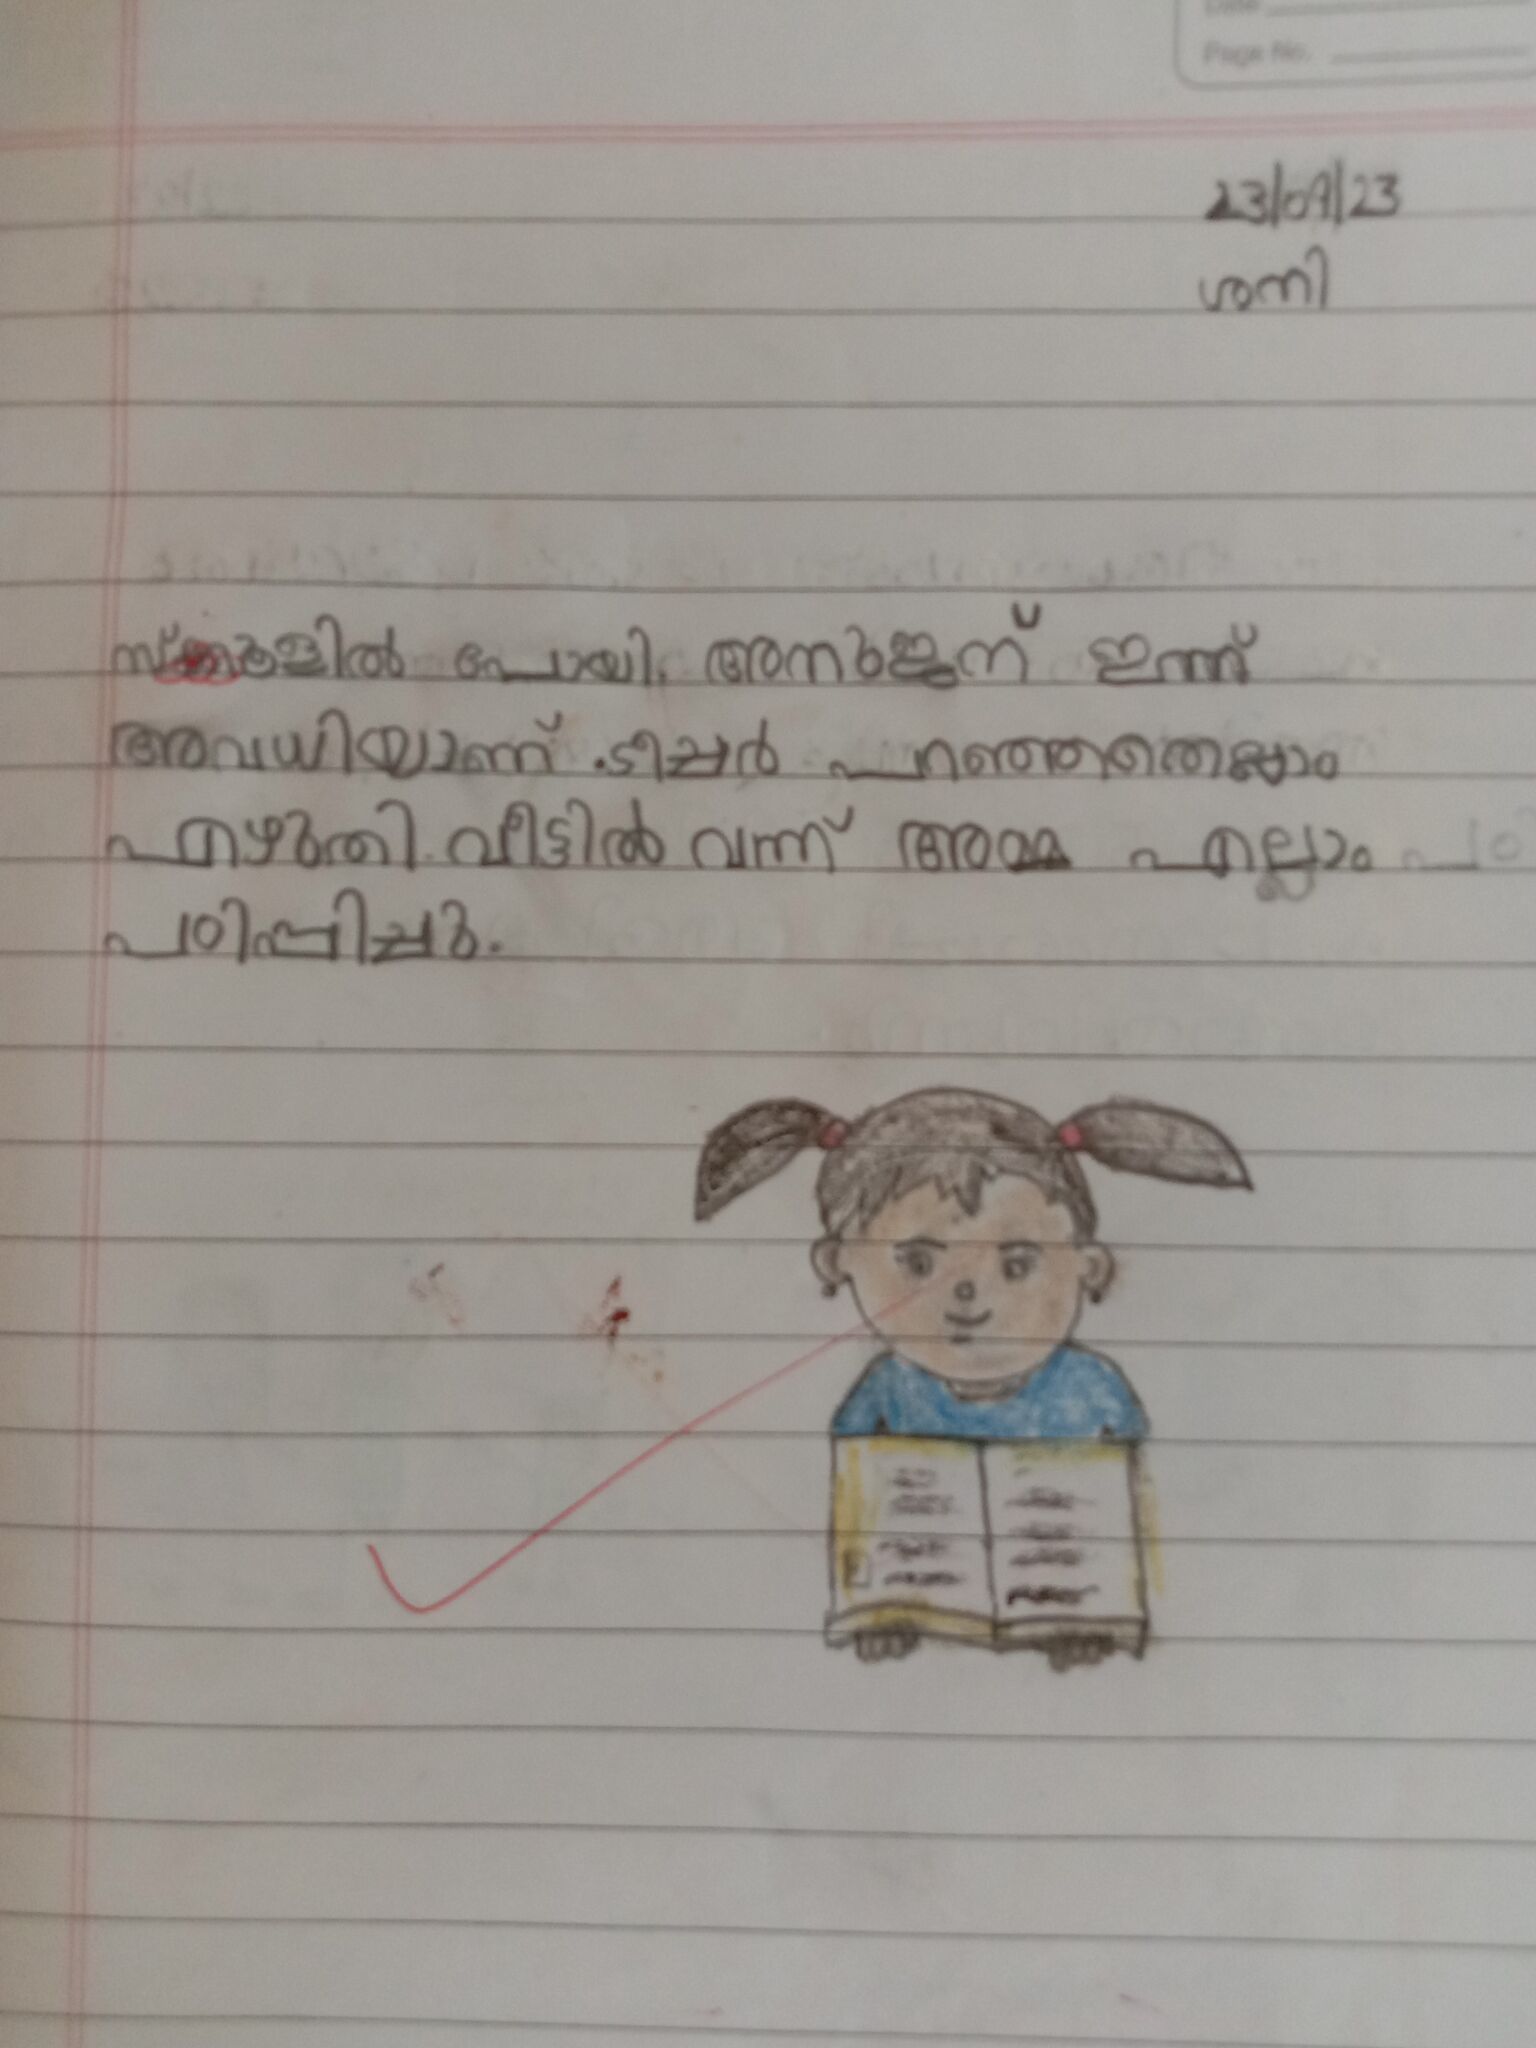 Date
Page No.
23/09/23
ശനി
സ്കൂളിൽ പോയി. അനുജന് ഇന്ന്
അവധിയാണ്. ടീച്ചർ പറഞ്ഞതെല്ലാം
എഴുതി. വീട്ടിൽ വന്ന് അമ്മ എല്ലാം
പഠിപ്പിച്ചു.